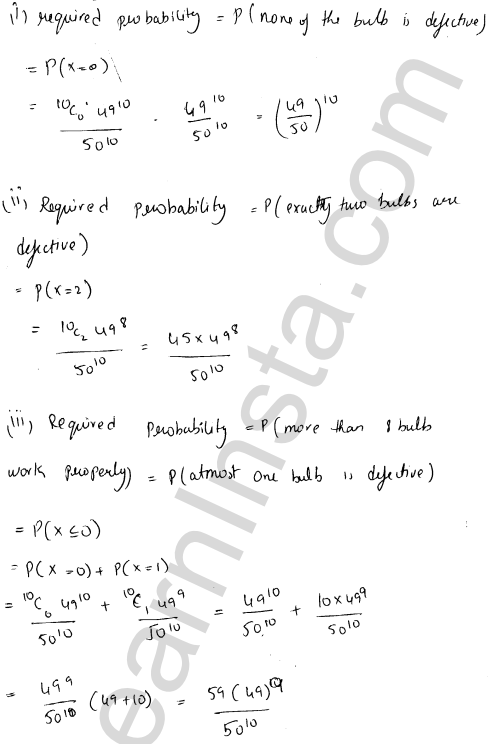 (i) required probability = P(none of the bulb is defective)
= P(x=0)
= ¹⁰C₀ · 49¹⁰ / 50¹⁰ . 49¹⁰ / 50¹⁰ = (49/50)¹⁰
(ii) Required probability = P(exactly two bulbs are
defective)
= P(x=2)
= ¹⁰C₂ 49⁸ / 50¹⁰ = 45 × 49⁸ / 50¹⁰
(iii) Required Probability = P(more than 8 bulb
work properly) = P(atmost one bulb is defective)
= P(x ≤ 0)
= P(x = 0) + P(x = 1)
= ¹⁰C₀ 49¹⁰ / 50¹⁰ + ¹⁰C₁ 49⁹ / 50¹⁰ = 49¹⁰ / 50¹⁰ + 10 × 49⁹ / 50¹⁰
= 49⁹ / 50¹⁰ (49+10) = 59 (49)⁹ / 50¹⁰
earnInsta.com